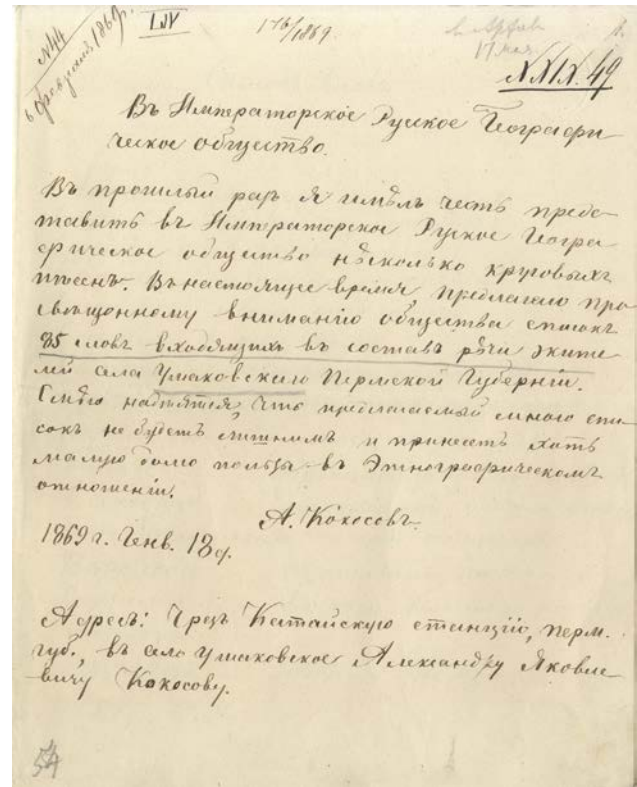 N44
6 февраля, 1869 г.
LIV
176/1869
въ Архивъ
17 мая.
XXIX. 49
Въ Императорское Русское Географи-
ческое общество.
Въ прошлый разъ я имѣлъ честь предс-
тавить въ Императорское Русское Геогра-
фическое общество нѣсколько круговыхъ
пѣсенъ. Въ настоящее время предлагаю про-
свѣщонному вниманію общества списокъ
85 словъ входящихъ въ составъ рѣчи жите-
лей села Ушаковскаго Пермской Губерніи.
Смѣю надѣятся, что предлагаемый мною спи-
сокъ не будетъ лишнимъ и принесетъ хать
малую долю пользы въ Этнографическомъ
отношеніи.
А. Кокосовъ.
1869 г. Генв. 18 д.
Адресъ: Чрезъ Катайскую станцію, перм.
губ., въ село Ушаковское Александру Яковле-
вичу Кокосову.
54